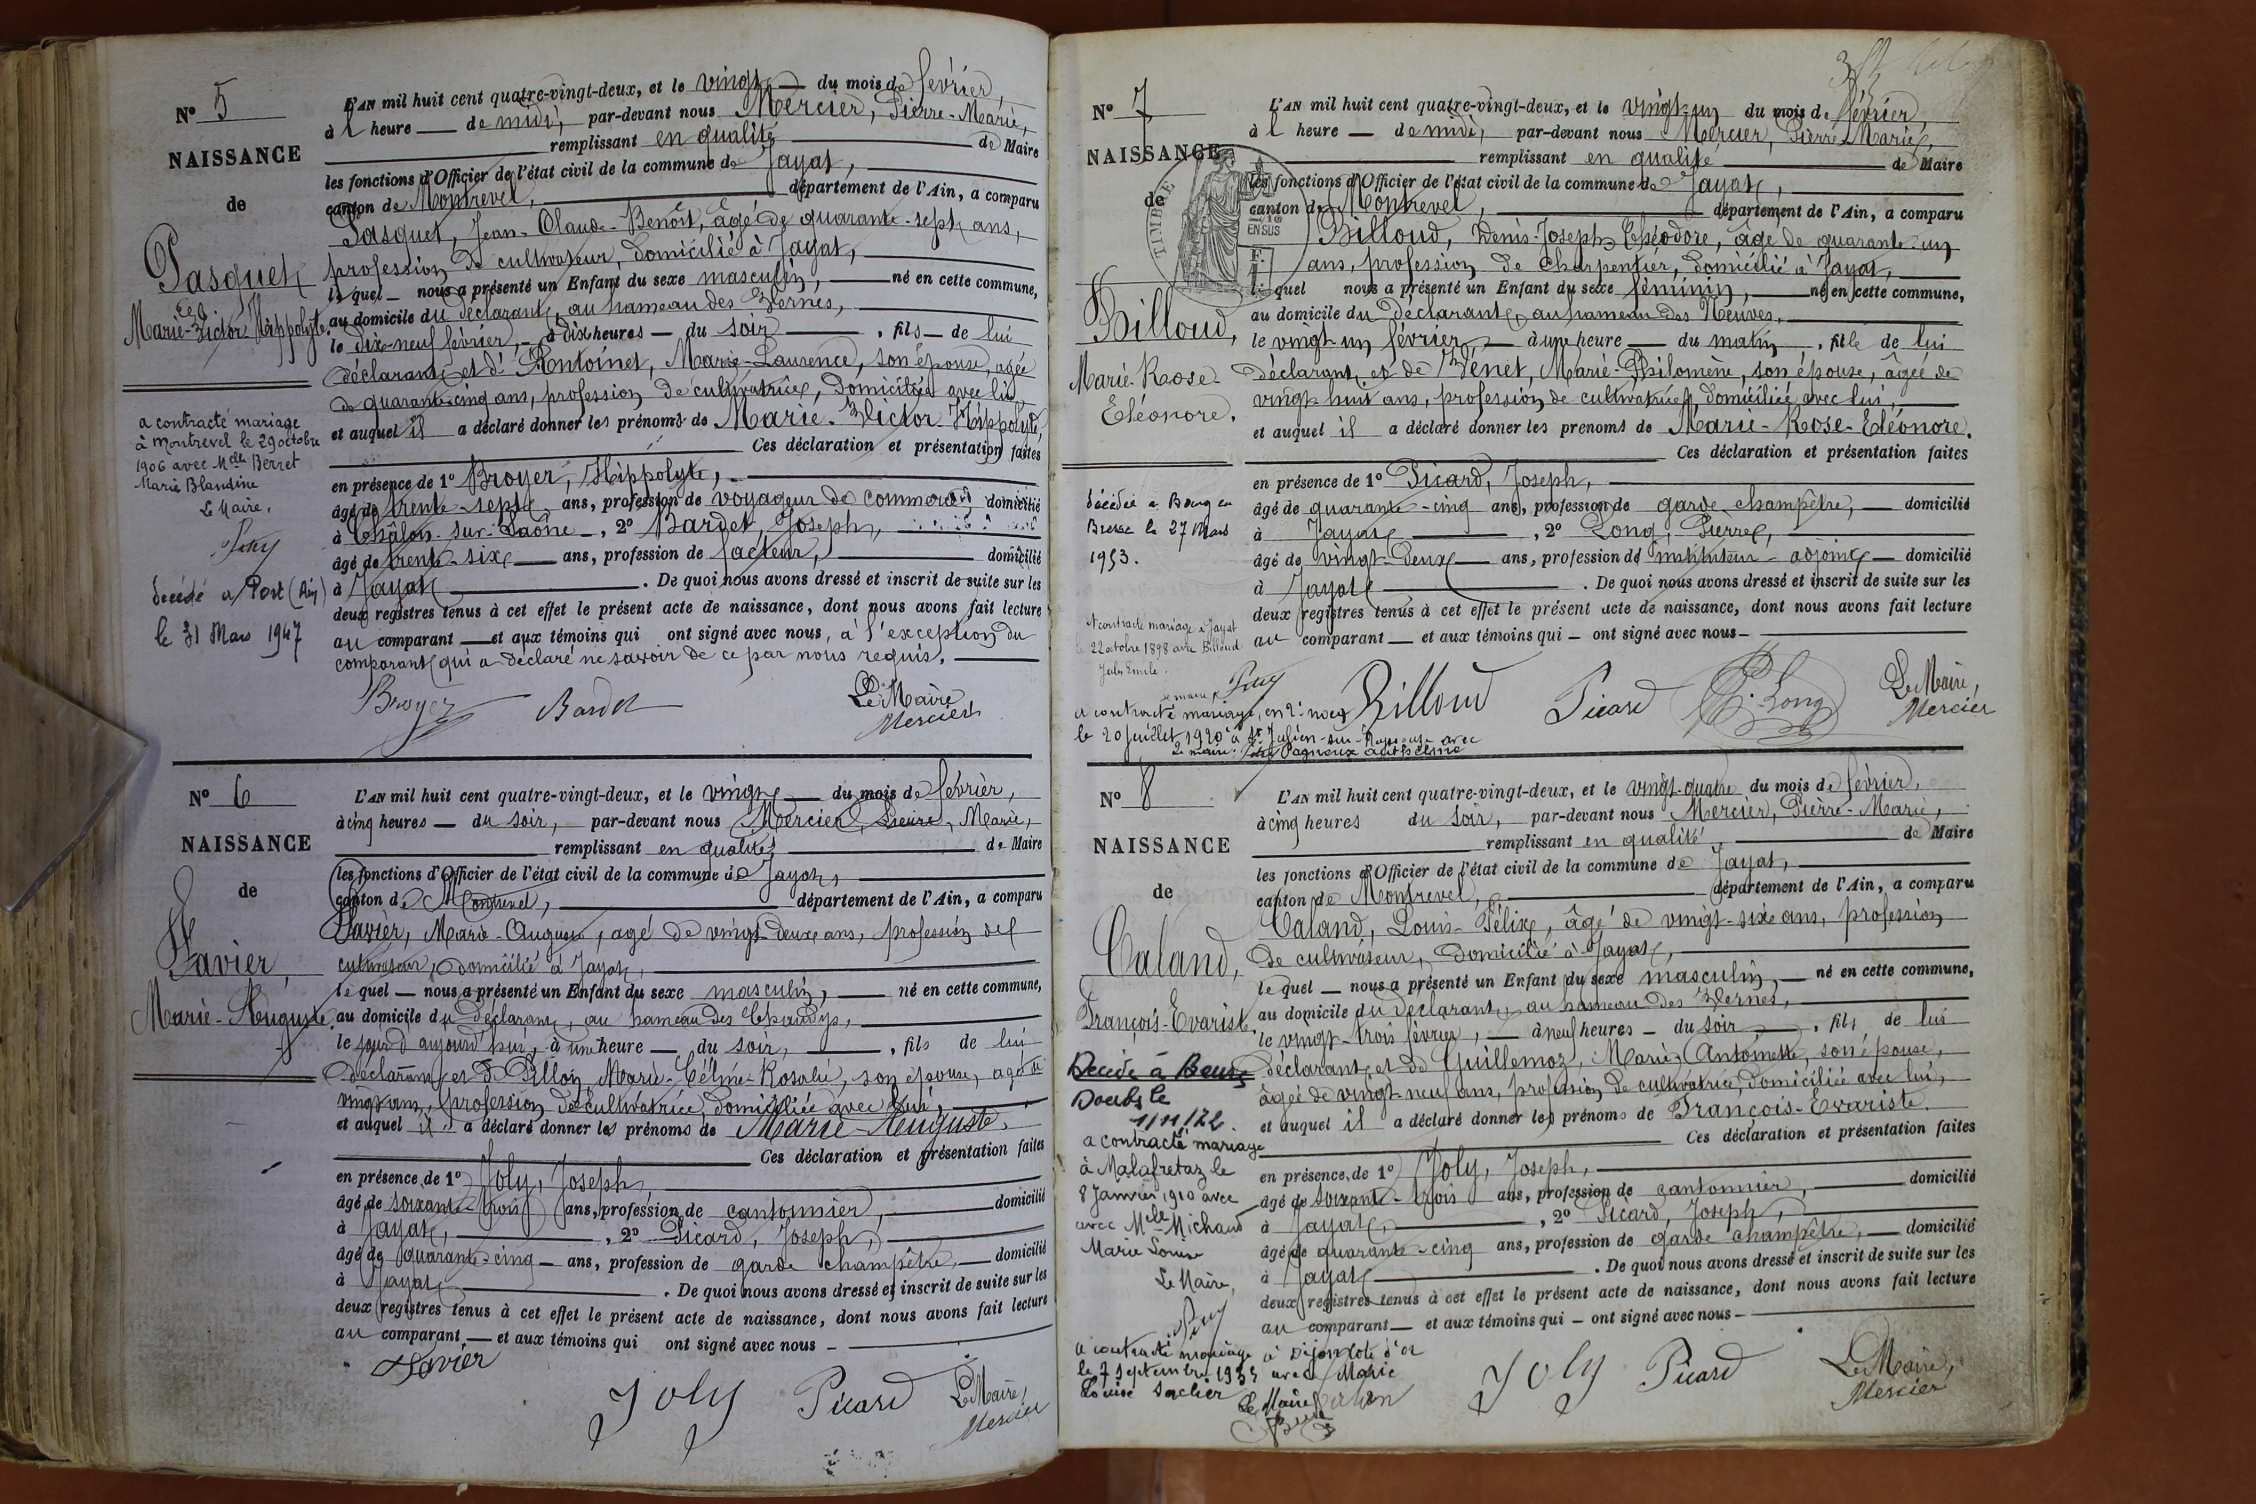 N° 5
NAISSANCE
de
Pasquet
Marie-Victor-Hippolyte.
a contracté mariage
à Montrevel le 29 octobre
1906 avec Melle Berret
Marie Blandine
Le Maire,
décédé à Port (Ain)
le 31 Mars 1947
L'AN mil huit cent quatre-vingt-deux, et le vingt du mois de février,
à 1 heure de midi, par-devant nous Mercier, Pierre-Marie,
remplissant en qualité de Maire
les fonctions d'Officier de l'état civil de la commune de Jayat,
canton de Montrevel, département de l'Ain, a comparu
Pasquet, Jean-Claude-Benoît, âgé de quarante-sept ans,
profession de cultivateur, domicilié à Jayat,
le quel nous a présenté un Enfant du sexe masculin, né en cette commune,
au domicile du déclarant, au hameau des Vernes,
le dix-neuf février, à dix heures du soir, fils de lui
déclarant et d'Antoinet, Marie-Laurence, son épouse, agée
de quarante-cinq ans, profession de cultivatrice, domiciliée avec lui,
et auquel il a déclaré donner les prénoms de Marie-Victor-Hippolyte,
Ces déclaration et présentation faites
en présence de 1° Broyer, Hippolyte,
âgé de trente-sept ans, profession de voyageur de commerce domicilié
à Châlon-sur-Saône, 2° Bardet, Joseph,
âgé de trente-six ans, profession de facteur, domicilié
à Jayat. De quoi nous avons dressé et inscrit de suite sur les
deux registres tenus à cet effet le présent acte de naissance, dont nous avons fait lecture
au comparant et aux témoins qui ont signé avec nous, à l'exception du
comparant qui a déclaré ne savoir de ce par nous requis.
Broyer Bardet Le Maire,
Mercier
N° 6
NAISSANCE
de
Favier,
Marie-Auguste.
L'AN mil huit cent quatre-vingt-deux, et le vingt du mois de février,
à cinq heures du soir, par-devant nous Mercier, Pierre, Marie,
remplissant en qualité de Maire
les fonctions d'Officier de l'état civil de la commune de Jayat,
canton de Montrevel, département de l'Ain, a comparu
Favier, Marie-Auguste, agé de vingt-deux ans, profession de
cultivateur, domicilié à Jayat,
le quel nous a présenté un Enfant du sexe masculin, né en cette commune,
au domicile du déclarant, au hameau des
le jour d'aujourd'hui, à une heure du soir, fils de lui
déclarant et de Pillon, Marie-Céline-Rosalie, son épouse, agée
vingt ans, profession de cultivatrice, domiciliée avec lui,
et auquel il a déclaré donner les prénoms de Marie-Auguste.
Ces déclaration et présentation faites
en présence de 1° Joly, Joseph,
âgé de soixante-trois ans, profession de cantonnier, domicilié
à Jayat, 2° Picard, Joseph,
âgé de quarante-cinq ans, profession de garde champêtre, domicilié
à Jayat. De quoi nous avons dressé et inscrit de suite sur les
deux registres tenus à cet effet le présent acte de naissance, dont nous avons fait lecture
au comparant et aux témoins qui ont signé avec nous
Favier Joly Picard Le Maire,
Mercier
N° 7
NAISSANCE
de
TIMBRE
EN SUS
Billoud,
Marie-Rose-
Eléonore.
décédée à Bourg en
Bresse le 27 Mars
1953.
A contracté mariage à Jayat
le 22 octobre 1898 avec Billoud
Jules Emile.
Le maire,
a contracté mariage, en 2es noces
le 20 juillet 1920 à St Julien-sur-Reyssouze avec
Le maire. Pagneux Anthelme
L'AN mil huit cent quatre-vingt-deux, et le vingt-un du mois de février,
à 1 heure de midi, par-devant nous Mercier, Pierre-Marie,
remplissant en qualité de Maire
les fonctions d'Officier de l'état civil de la commune de Jayat,
canton de Montrevel, département de l'Ain, a comparu
Billoud, Denis-Joseph-Théodore, âgé de quarante-un
ans, profession de charpentier, domicilié à Jayat,
le quel nous a présenté un Enfant du sexe féminin, né en cette commune,
au domicile du déclarant, au hameau des Neuves,
le vingt-un février, à une heure du matin, fille de lui
déclarant, et de Venet, Marie-Philomène, son épouse, âgée de
vingt-huit ans, profession de cultivatrice, domiciliée avec lui,
et auquel il a déclaré donner les prénoms de Marie-Rose-Eléonore.
Ces déclaration et présentation faites
en présence de 1° Picard, Joseph,
âgé de quarante-cinq ans, profession de garde champêtre, domicilié
à Jayat, 2° Long, Pierre,
âgé de vingt-deux ans, profession de instituteur-adjoint domicilié
à Jayat. De quoi nous avons dressé et inscrit de suite sur les
deux registres tenus à cet effet le présent acte de naissance, dont nous avons fait lecture
au comparant et aux témoins qui ont signé avec nous
Billoud Picard P. Long Le Maire,
Mercier
N° 8
NAISSANCE
de
Caland,
François-Evariste.
Décédé à Beure
Doubs le
1/11/22
a contracté mariage
à Malafretaz le
8 Janvier 1910 avec
avec Melle Michaud
Marie Louise
Le Maire,
a contracté mariage à Dijon Côte d'Or
le 7 Septembre 1935 avec Marie
Louise
Le Maire
L'AN mil huit cent quatre-vingt-deux, et le vingt-quatre du mois de février,
à cinq heures du soir, par-devant nous Mercier, Pierre-Marie,
remplissant en qualité de Maire
les fonctions d'Officier de l'état civil de la commune de Jayat,
canton de Montrevel, département de l'Ain, a comparu
Caland, Louis-Félix, âgé de vingt-six ans, profession
de cultivateur, domicilié à Jayat,
le quel nous a présenté un Enfant du sexe masculin, né en cette commune,
au domicile du déclarant, au hameau des Vernes,
le vingt-trois février, à neuf heures du soir, fils de lui
déclarant, et de Guillemoz, Marie-Antoinette, son épouse,
âgée de vingt-neuf ans, profession de cultivatrice, domiciliée avec lui,
et auquel il a déclaré donner les prénoms de François-Evariste.
Ces déclaration et présentation faites
en présence de 1° Joly, Joseph,
âgé de soixante-trois ans, profession de cantonnier, domicilié
à Jayat, 2° Picard, Joseph,
âgé de quarante-cinq ans, profession de garde champêtre, domicilié
à Jayat. De quoi nous avons dressé et inscrit de suite sur les
deux registres tenus à cet effet le présent acte de naissance, dont nous avons fait lecture
au comparant et aux témoins qui ont signé avec nous
Joly Picard Le Maire,
Mercier